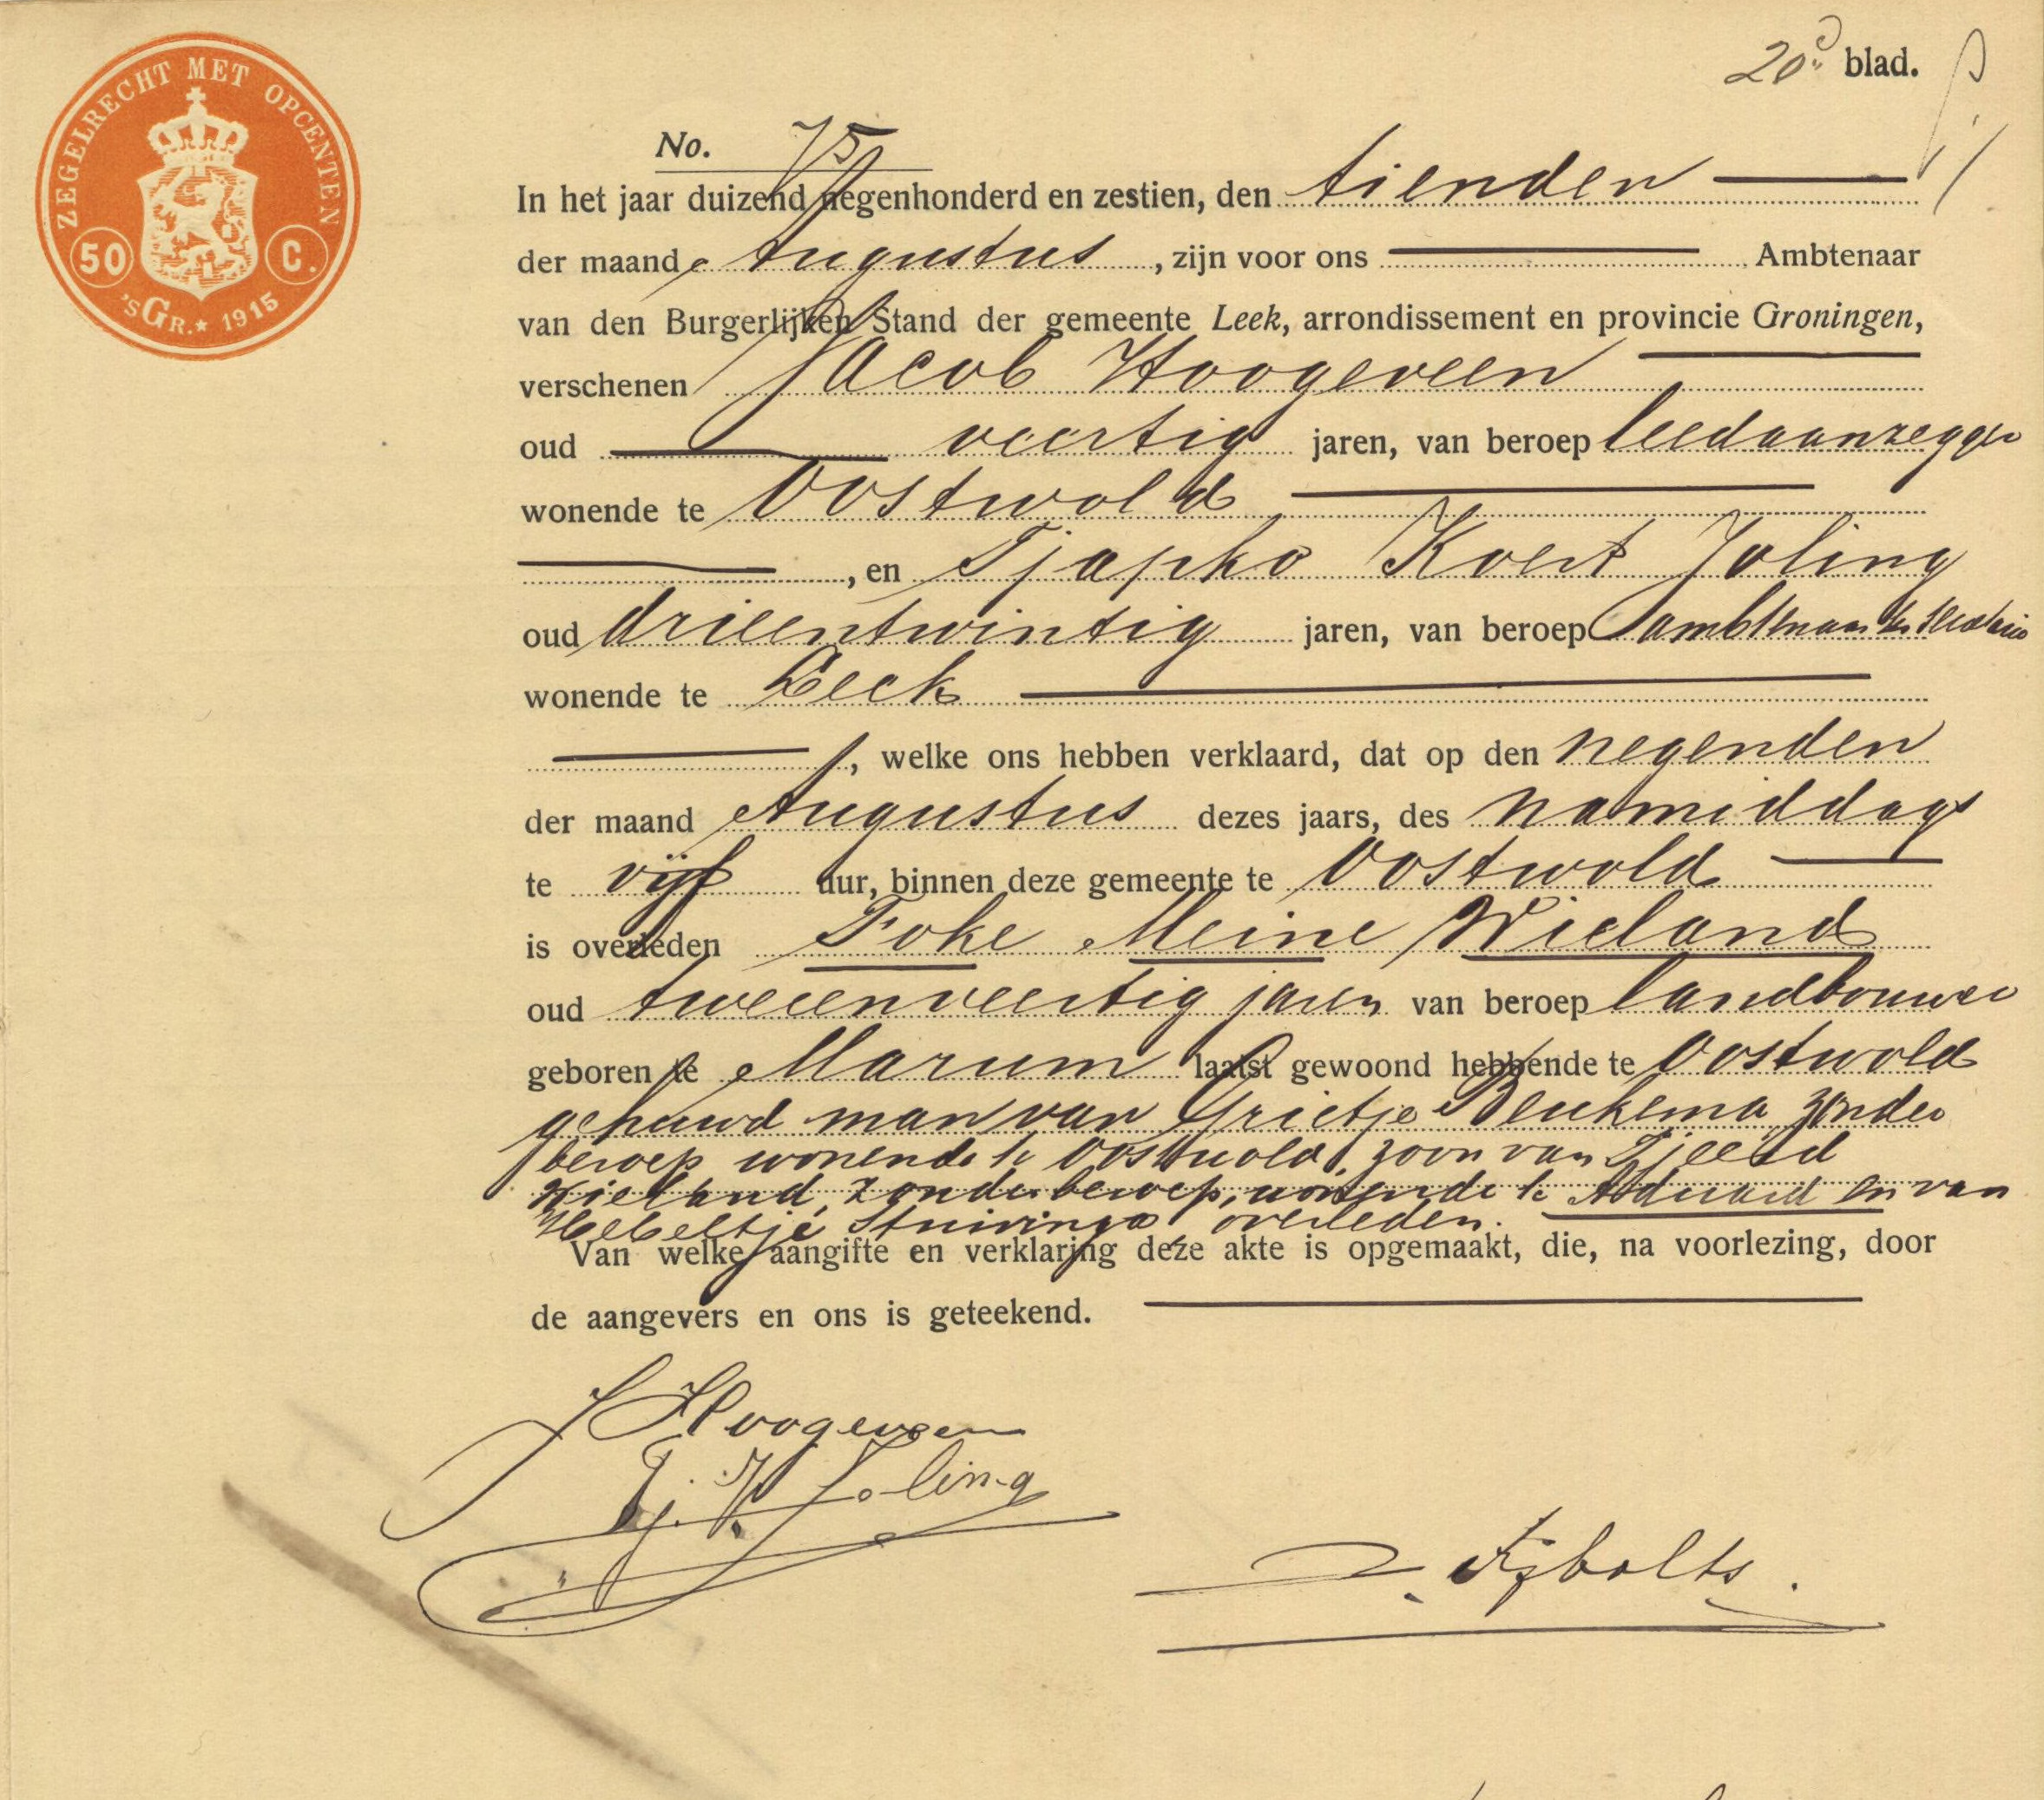 20e blad.
ZEGELRECHT MET OPCENTEN
50 C.
'sGr.★ 1915
No. 75
In het jaar duizend negenhonderd en zestien, den tienden
der maand Augustus, zijn voor ons Ambtenaar
van den Burgerlijken Stand der gemeente Leek, arrondissement en provincie Groningen,
verschenen Jacob Hoogeveen
oud veertig jaren, van beroep leedaanzegger
wonende te Oostwold
, en Tjapko Koert Joling
oud drieentwintig jaren, van beroep ambtenaar ter secretarie
wonende te Leek
, welke ons hebben verklaard, dat op den negenden
der maand Augustus dezes jaars, des namiddags
te vijf uur, binnen deze gemeente te Oostwold
is overleden Foke Meine Wieland
oud tweeenveertig jaren van beroep landbouwer
geboren te Marum laatst gewoond hebbende te Oostwold
gehuwd man van Grietje Beukema, zonder
beroep wonende te Oostwold, zoon van Tjeerd
Wieland, zonder beroep, wonende te Aduard en van
Hebeltje Stuivinga overleden.
Van welke aangifte en verklaring deze akte is opgemaakt, die, na voorlezing, door
de aangevers en ons is geteekend.
J Hoogeveen
Tj. K. Joling